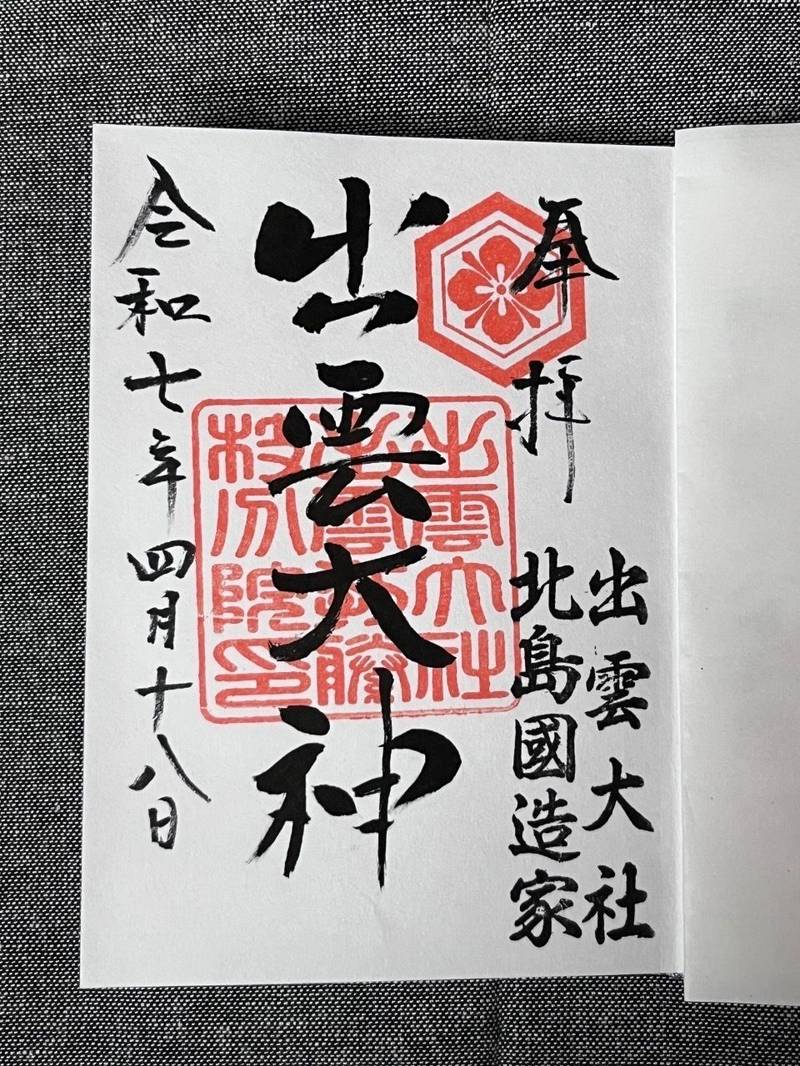 奉拝
出雲大社
北島國造家
出雲大神
令和七年四月十八日
出雲大社